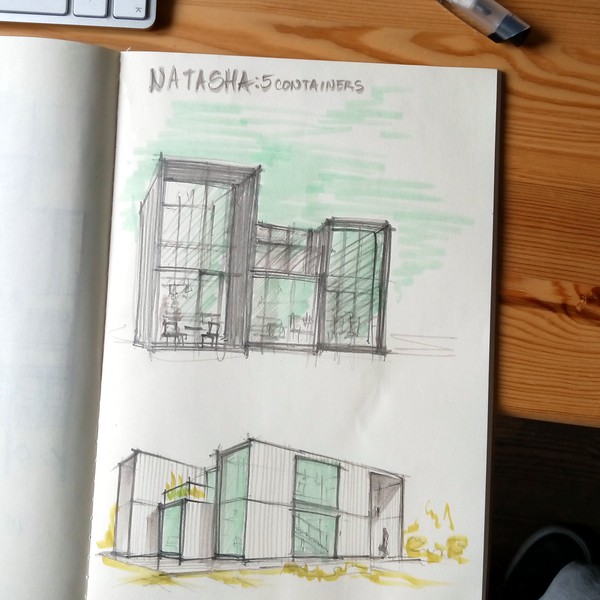 NATASHA:5 CONTAINERS